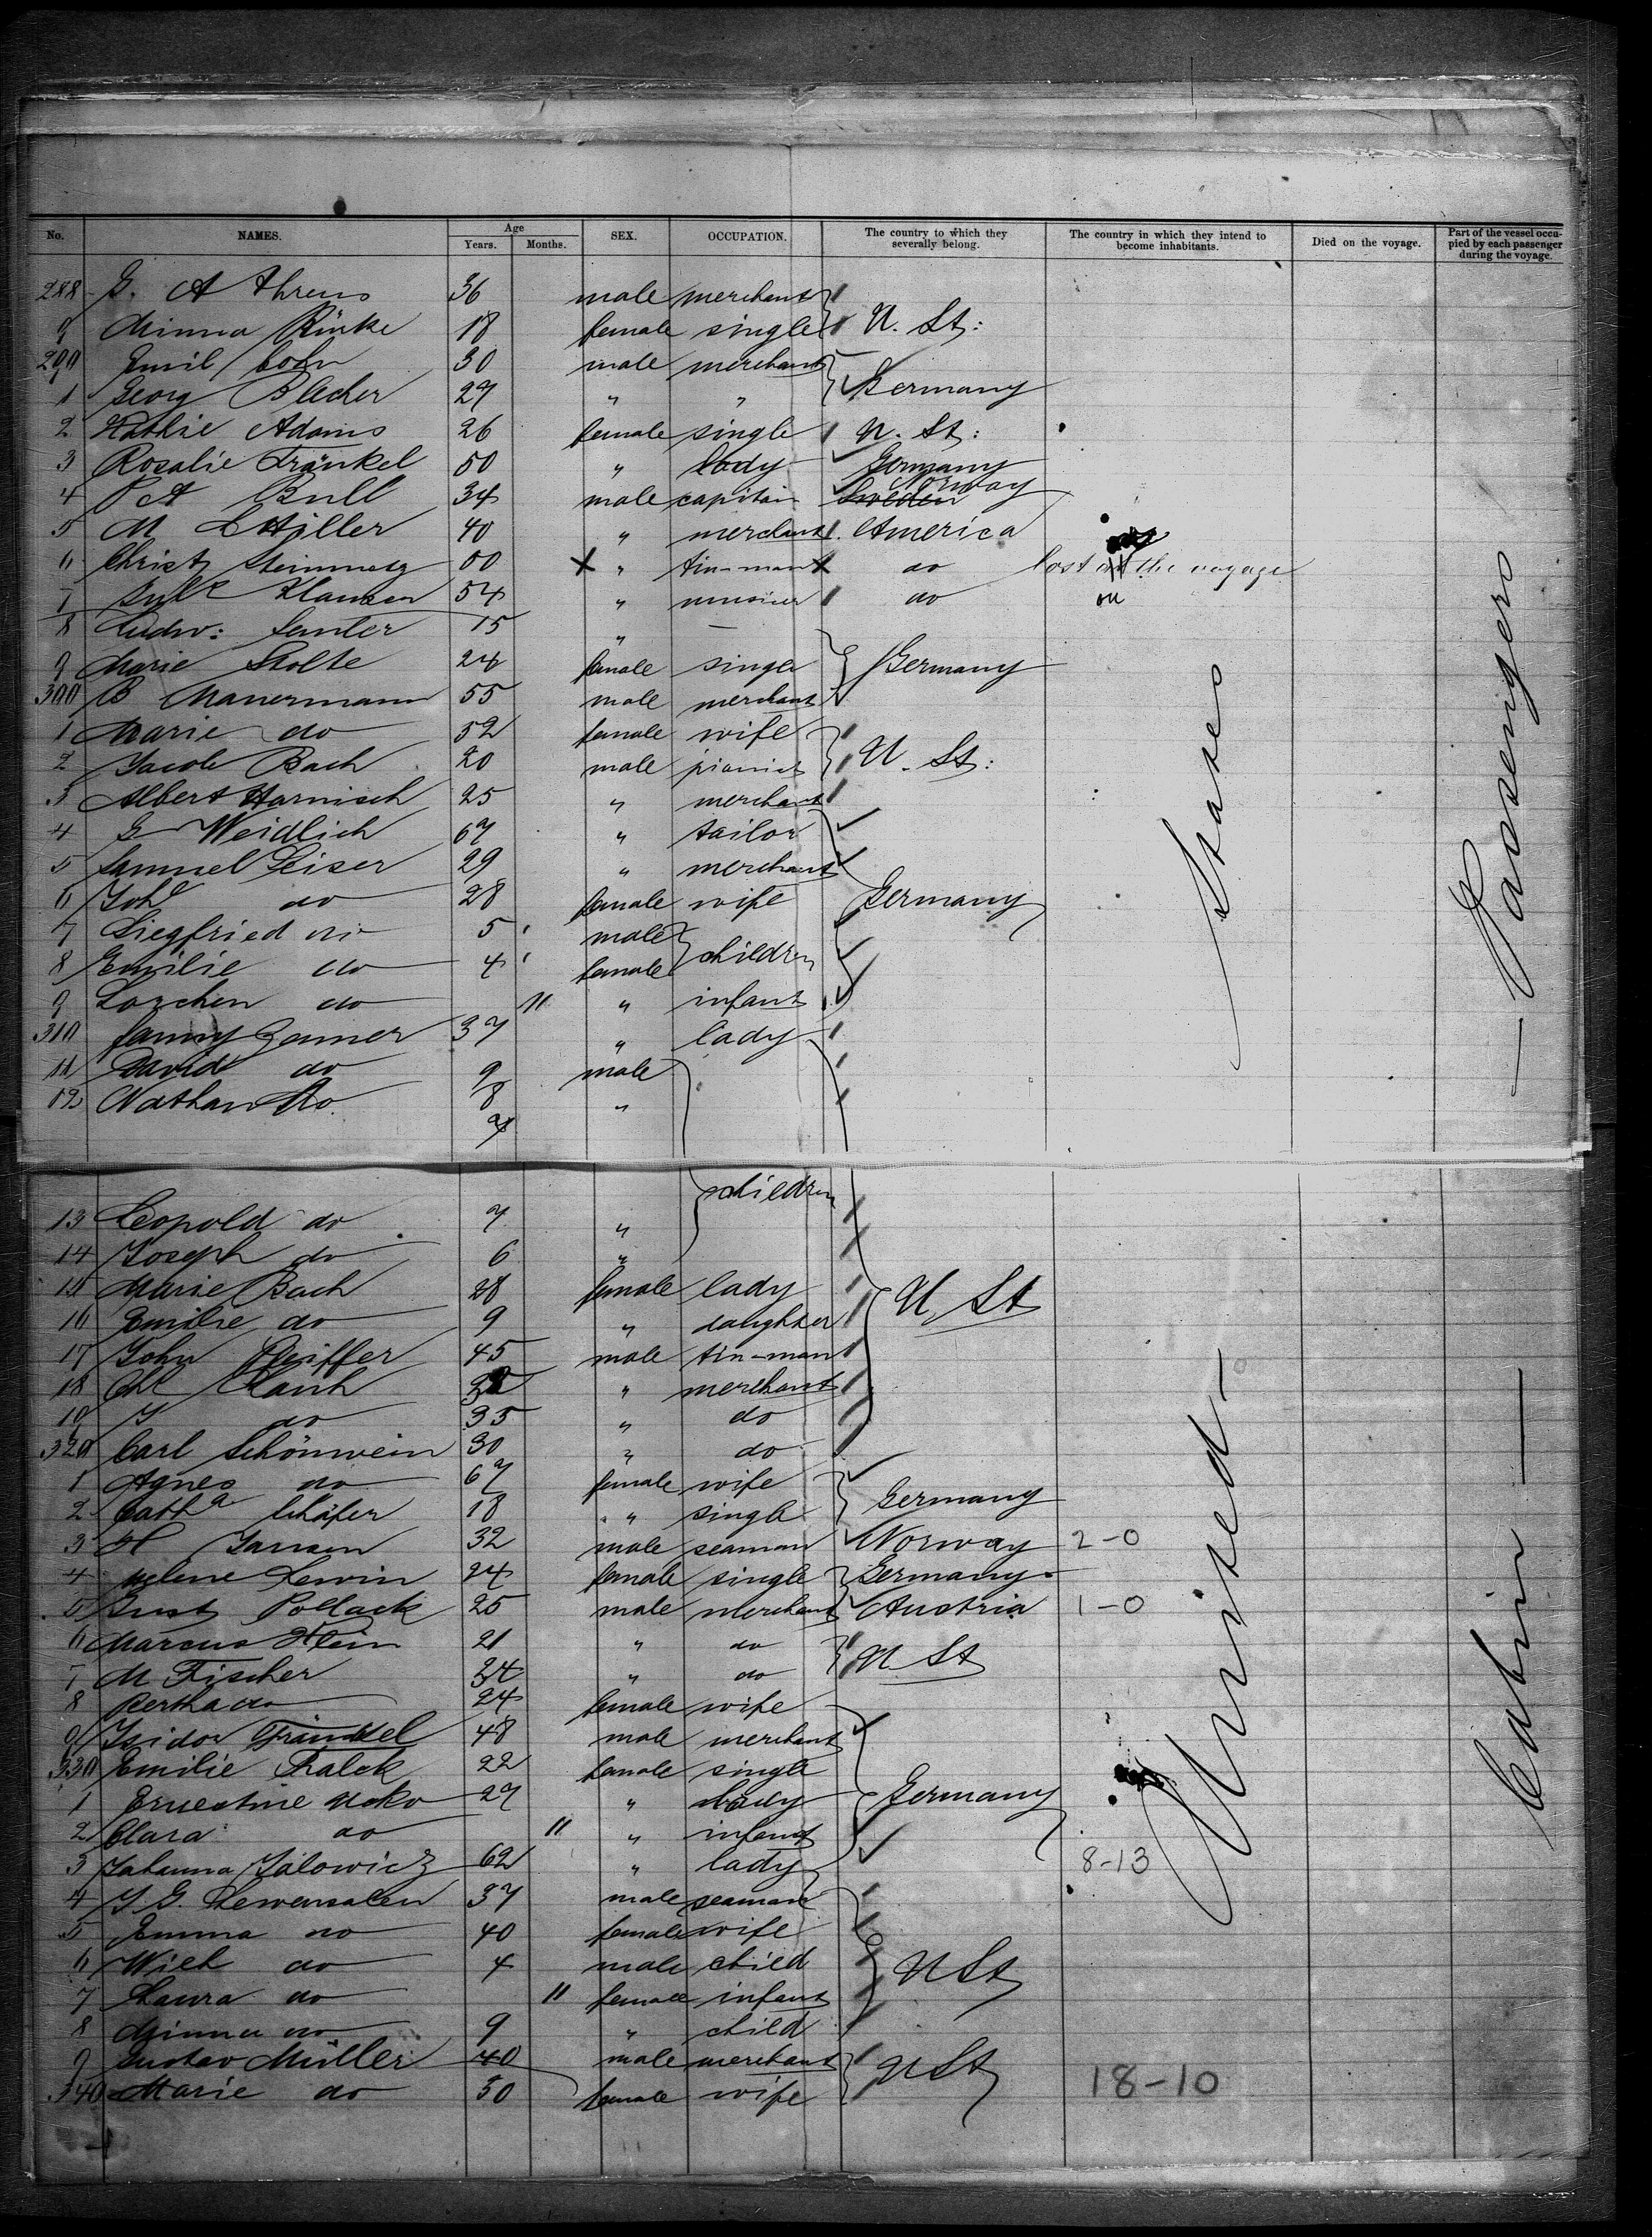 No. NAMES. Age Years. Months. SEX. OCCUPATION. The country to which they severally belong. The country in which they intend to become inhabitants. Died on the voyage. Part of the vessel occupied by each passenger during the voyage.
288 G. A Ahrens 36 male merchant
9 Minna Rinke 18 female single U. St:
290 Emil Cohn 30 male merchant
1 Georg Blecher 27 " " Germany
2 Kathie Adams 26 female single U. St:
3 Rosalie Fränkel 50 " lady Germany
4 P A Bull 34 male capitain Sweden Norway
5 M. L Hiller 40 " merchant America
6 Christ 50 " tin-man do lost on the voyage
7 54 " do
8 Ludw: 15 "
9 Marie Stolte 24 female single Germany
300 B Mauermann 55 male merchant
1 Marie do 52 female wife
2 Jacob Bach 20 male pianist U. St:
3 Albert Harnisch 25 " merchant
4 G Weidlich 67 " tailor
5 Samuel Leiser 29 " merchant
6 Joh do 28 female wife Germany
7 Siegfried do 5 male
8 Emilie do 4 female children
9 Lorchen do 11 " infant
310 Fanny 37 " lady
11 David do 9 male
12 Nathan do 8 "
7
children
13 Leopold do 7 "
14 Joseph do 6 "
15 Marie Bach 28 female lady U St
16 Emilie do 9 " daughter
17 John Pfeiffer 45 male tin-man
18 " merchant
19 J do 35 " do
320 Carl Schönwein 30 " do
1 Agnes do 67 female wife
2 Cath Schäfer 18 " single Germany
3 H Jansen 32 male seaman Norway 2-0
4 Helene Lewin 24 female single Germany
5 Gust Pollack 25 male merchant Austria 1-0
6 Marcus Stein 21 " do
7 M Fischer 34 " do U St
8 Bertha do 24 female wife
9 Isidor Fränkel 48 male merchant
330 Emilie Falck 22 female single
1 Ernestine 27 " lady Germany
2 Clara do 11 " infant
3 Johanna Jalowicz 62 " lady 8-13
4 J. G. 37 male seaman
5 Emma do 40 female wife
6 do 4 male child U St
7 Laura do 11 female infant
8 Minna do 9 " child
9 Gustav Müller 40 male merchant U St
340 Marie do 30 female wife 18-10
United States
Cabin Passengers